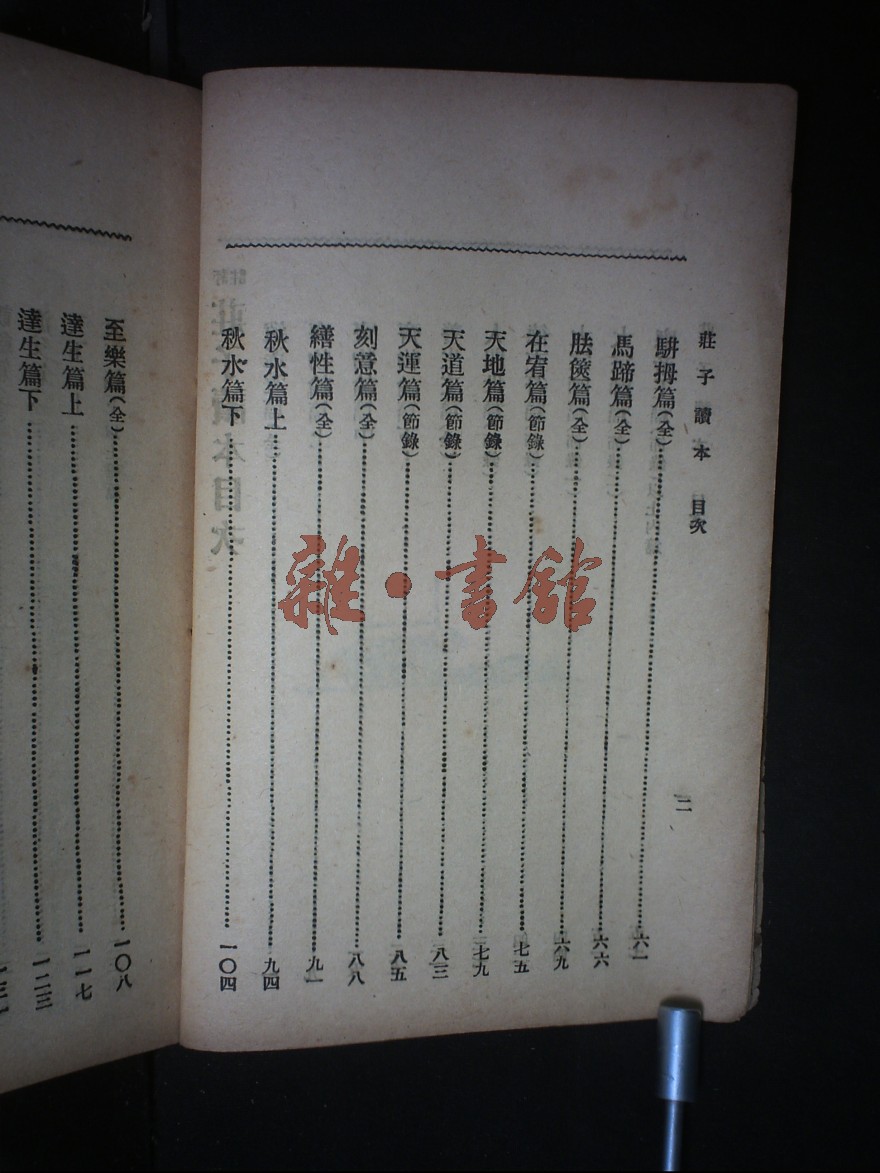 莊子讀本 目次 二
駢拇篇(全)……六一
馬蹄篇(全)……六六
胠篋篇(全)……六九
在宥篇(節錄)……七五
天地篇(節錄)……七九
天道篇(節錄)……八三
天運篇(節錄)……八五
刻意篇(全)……八八
繕性篇(全)……九一
秋水篇上……九四
秋水篇下……一〇四
至樂篇(全)……一〇八
達生篇上……一一七
達生篇下……一二三
雜·書館